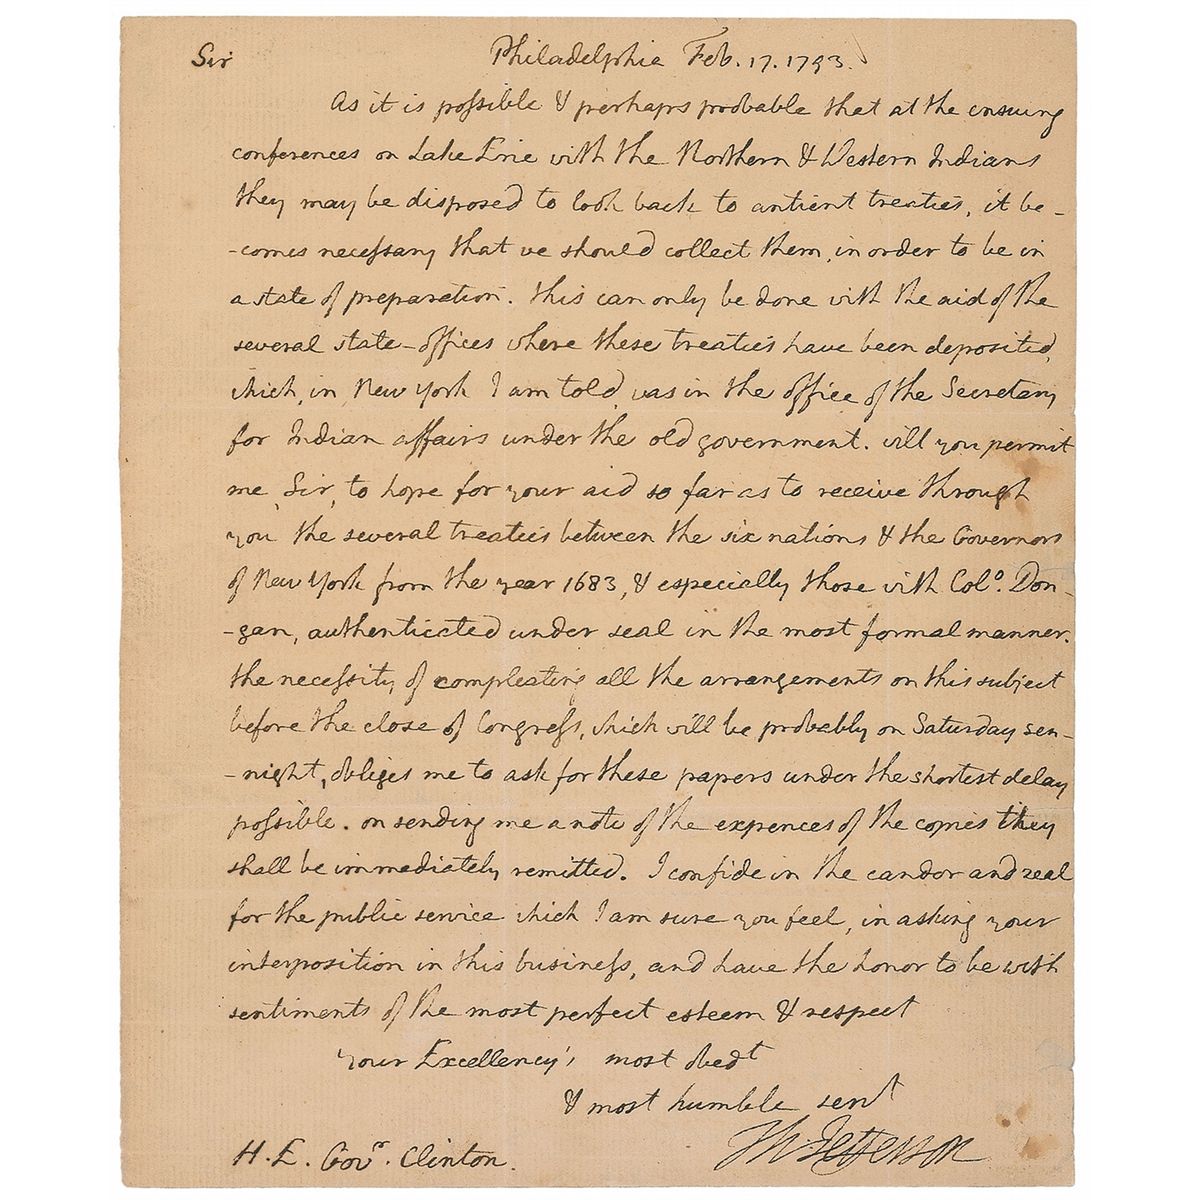 Sir Philadelphia Feb. 17. 1793.
As it is possible & perhaps probable that at the ensuing
conferences on Lake Erie with the Northern & Western Indians
they may be disposed to look back to antient treaties, it be-
-comes necessary that we should collect them, in order to be in
a state of preparation. this can only be done with the aid of the
several state-offices where these treaties have been deposited,
which, in New York I am told, was in the office of the Secretary
for Indian affairs under the old government. will you permit
me, Sir, to hope for your aid so far as to receive through
you the several treaties between the six nations & the Governors
of New York from the year 1683, & especially those with Colo. Don-
-gan, authenticated under seal in the most formal manner.
the necessity of compleating all the arrangements on this subject
before the close of Congress, which will be probably on Saturday sen-
-night, obliges me to ask for these papers under the shortest delay
possible. on sending me a note of the expences of the copies they
shall be immediately remitted. I confide in the candor and zeal
for the public service which I am sure you feel, in asking your
interposition in this business, and have the honor to be with
sentiments of the most perfect esteem & respect
your Excellency's most obedt
& most humble servt
Th Jefferson
H. E. Govr. Clinton.